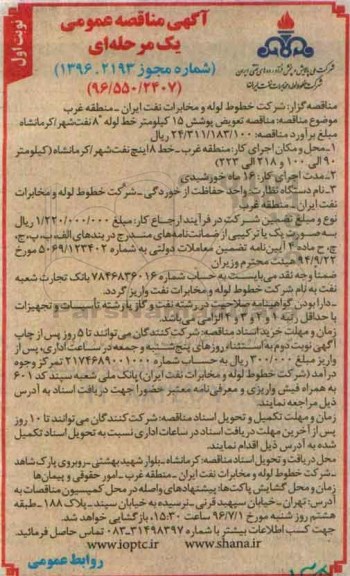 نوبت اول
آگهی مناقصه عمومی
یک مرحله‌ای
(شماره مجوز ۱۳۹۶.۲۱۹۳)
(۹۶/۵۵۰/۲۴۰۷)
شرکت ملی پالایش و پخش فرآورده‌های نفتی ایران
شرکت خطوط لوله و مخابرات نفت ایران
مناقصه گزار: شرکت خطوط لوله و مخابرات نفت ایران - منطقه غرب
موضوع مناقصه: مناقصه تعویض پوشش ۱۵ کیلومتر خط لوله "۸ نفت‌شهر/کرمانشاه
مبلغ برآورد مناقصه: ۲۴/۳۱۱/۱۸۳/۱۰۰ ریال
۱-محل و مکان اجرای کار: منطقه غرب - خط ۸ اینچ نفت‌شهر/کرمانشاه (کیلومتر
۹۰ الی ۱۰۰ و ۲۱۸ الی ۲۲۳)
۲-مدت اجرای کار: ۱۶ ماه خورشیدی
۳-نام دستگاه نظارت: واحد حفاظت از خوردگی - شرکت خطوط لوله و مخابرات
نفت ایران - منطقه غرب
نوع و مبلغ تضمین شرکت در فرآیند ارجاع کار: مبلغ ۱/۲۲۰/۰۰۰/۰۰۰ ریال
به صورت یک یا ترکیبی از ضمانت‌نامه‌های مندرج در بندهای الف، ب، پ، ج،
چ، ح ماده ۴ آیین‌نامه تضمین معاملات دولتی به شماره ۵۰۶۹/۱۲۳۴۰۲ مورخ
۹۴/۹/۲۲ هیئت محترم وزیران
ضمناً وجه نقد می‌بایست به حساب شماره ۷۸۴۶۸۳۶۰۱۶ بانک تجارت شعبه
نفت به نام شرکت خطوط لوله و مخابرات نفت واریز گردد.
-دارا بودن گواهینامه صلاحیت در رشته نفت و گاز یا رشته تأسیسات و تجهیزات
با حداقل رتبه ۱ و ۲ و ۳ و ۴ الزامی می‌باشد.
زمان و مهلت خرید اسناد مناقصه: شرکت کنندگان می‌توانند تا ۵ روز پس از چاپ
آگهی نوبت دوم به استثناء روزهای پنج‌شنبه و جمعه در ساعات اداری، پس از
واریز مبلغ ۳۰۰/۰۰۰ ریال به حساب شماره ۲۱۷۴۶۸۹۰۰۱۰۰۰ تمرکز وجوه
درآمد (شرکت خطوط لوله و مخابرات نفت ایران) بانک ملی شعبه سپند کد ۶۰۱
به همراه فیش واریزی و معرفی‌نامه معتبر حضوراً جهت دریافت اسناد به آدرس
ذیل مراجعه نمایند.
زمان و مهلت تکمیل و تحویل اسناد مناقصه: شرکت کنندگان می‌توانند تا ۱۰ روز
پس از آخرین مهلت دریافت اسناد در ساعات اداری نسبت به تحویل اسناد تکمیل
شده به آدرس ذیل اقدام نمایند.
محل دریافت و تحویل اسناد مناقصه: کرمانشاه - بلوار شهید بهشتی - روبروی پارک شاهد
- شرکت خطوط لوله و مخابرات نفت ایران - منطقه غرب - امور حقوقی و پیمان‌ها
زمان و محل گشایش پاکت‌ها: پیشنهادهای واصله در محل کمیسیون مناقصات به
آدرس: تهران - خیابان سپهبد قرنی - نرسیده به خیابان سپند - پلاک ۱۸۸ - طبقه
هشتم روز شنبه مورخ ۹۶/۷/۱ ساعت ۱۵:۳۰، بازگشایی خواهد شد.
جهت کسب اطلاعات بیشتر با شماره ۳۱۴۹۸۳۹۷-۰۸۳ تماس حاصل فرمائید.
www.ioptc.ir www.shana.ir
روابط عمومی